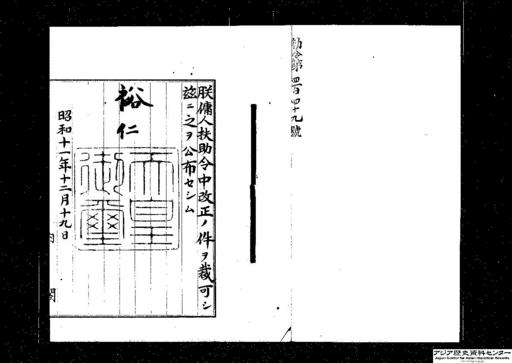 勅令第四百四十九號
朕傭人扶助令中改正ノ件ヲ裁可シ
玆ニ之ヲ公布セシム
裕仁
天皇御璽
昭和十一年十二月十九日
内閣
アジア歴史資料センター
Japan Center for Asian Historical Records